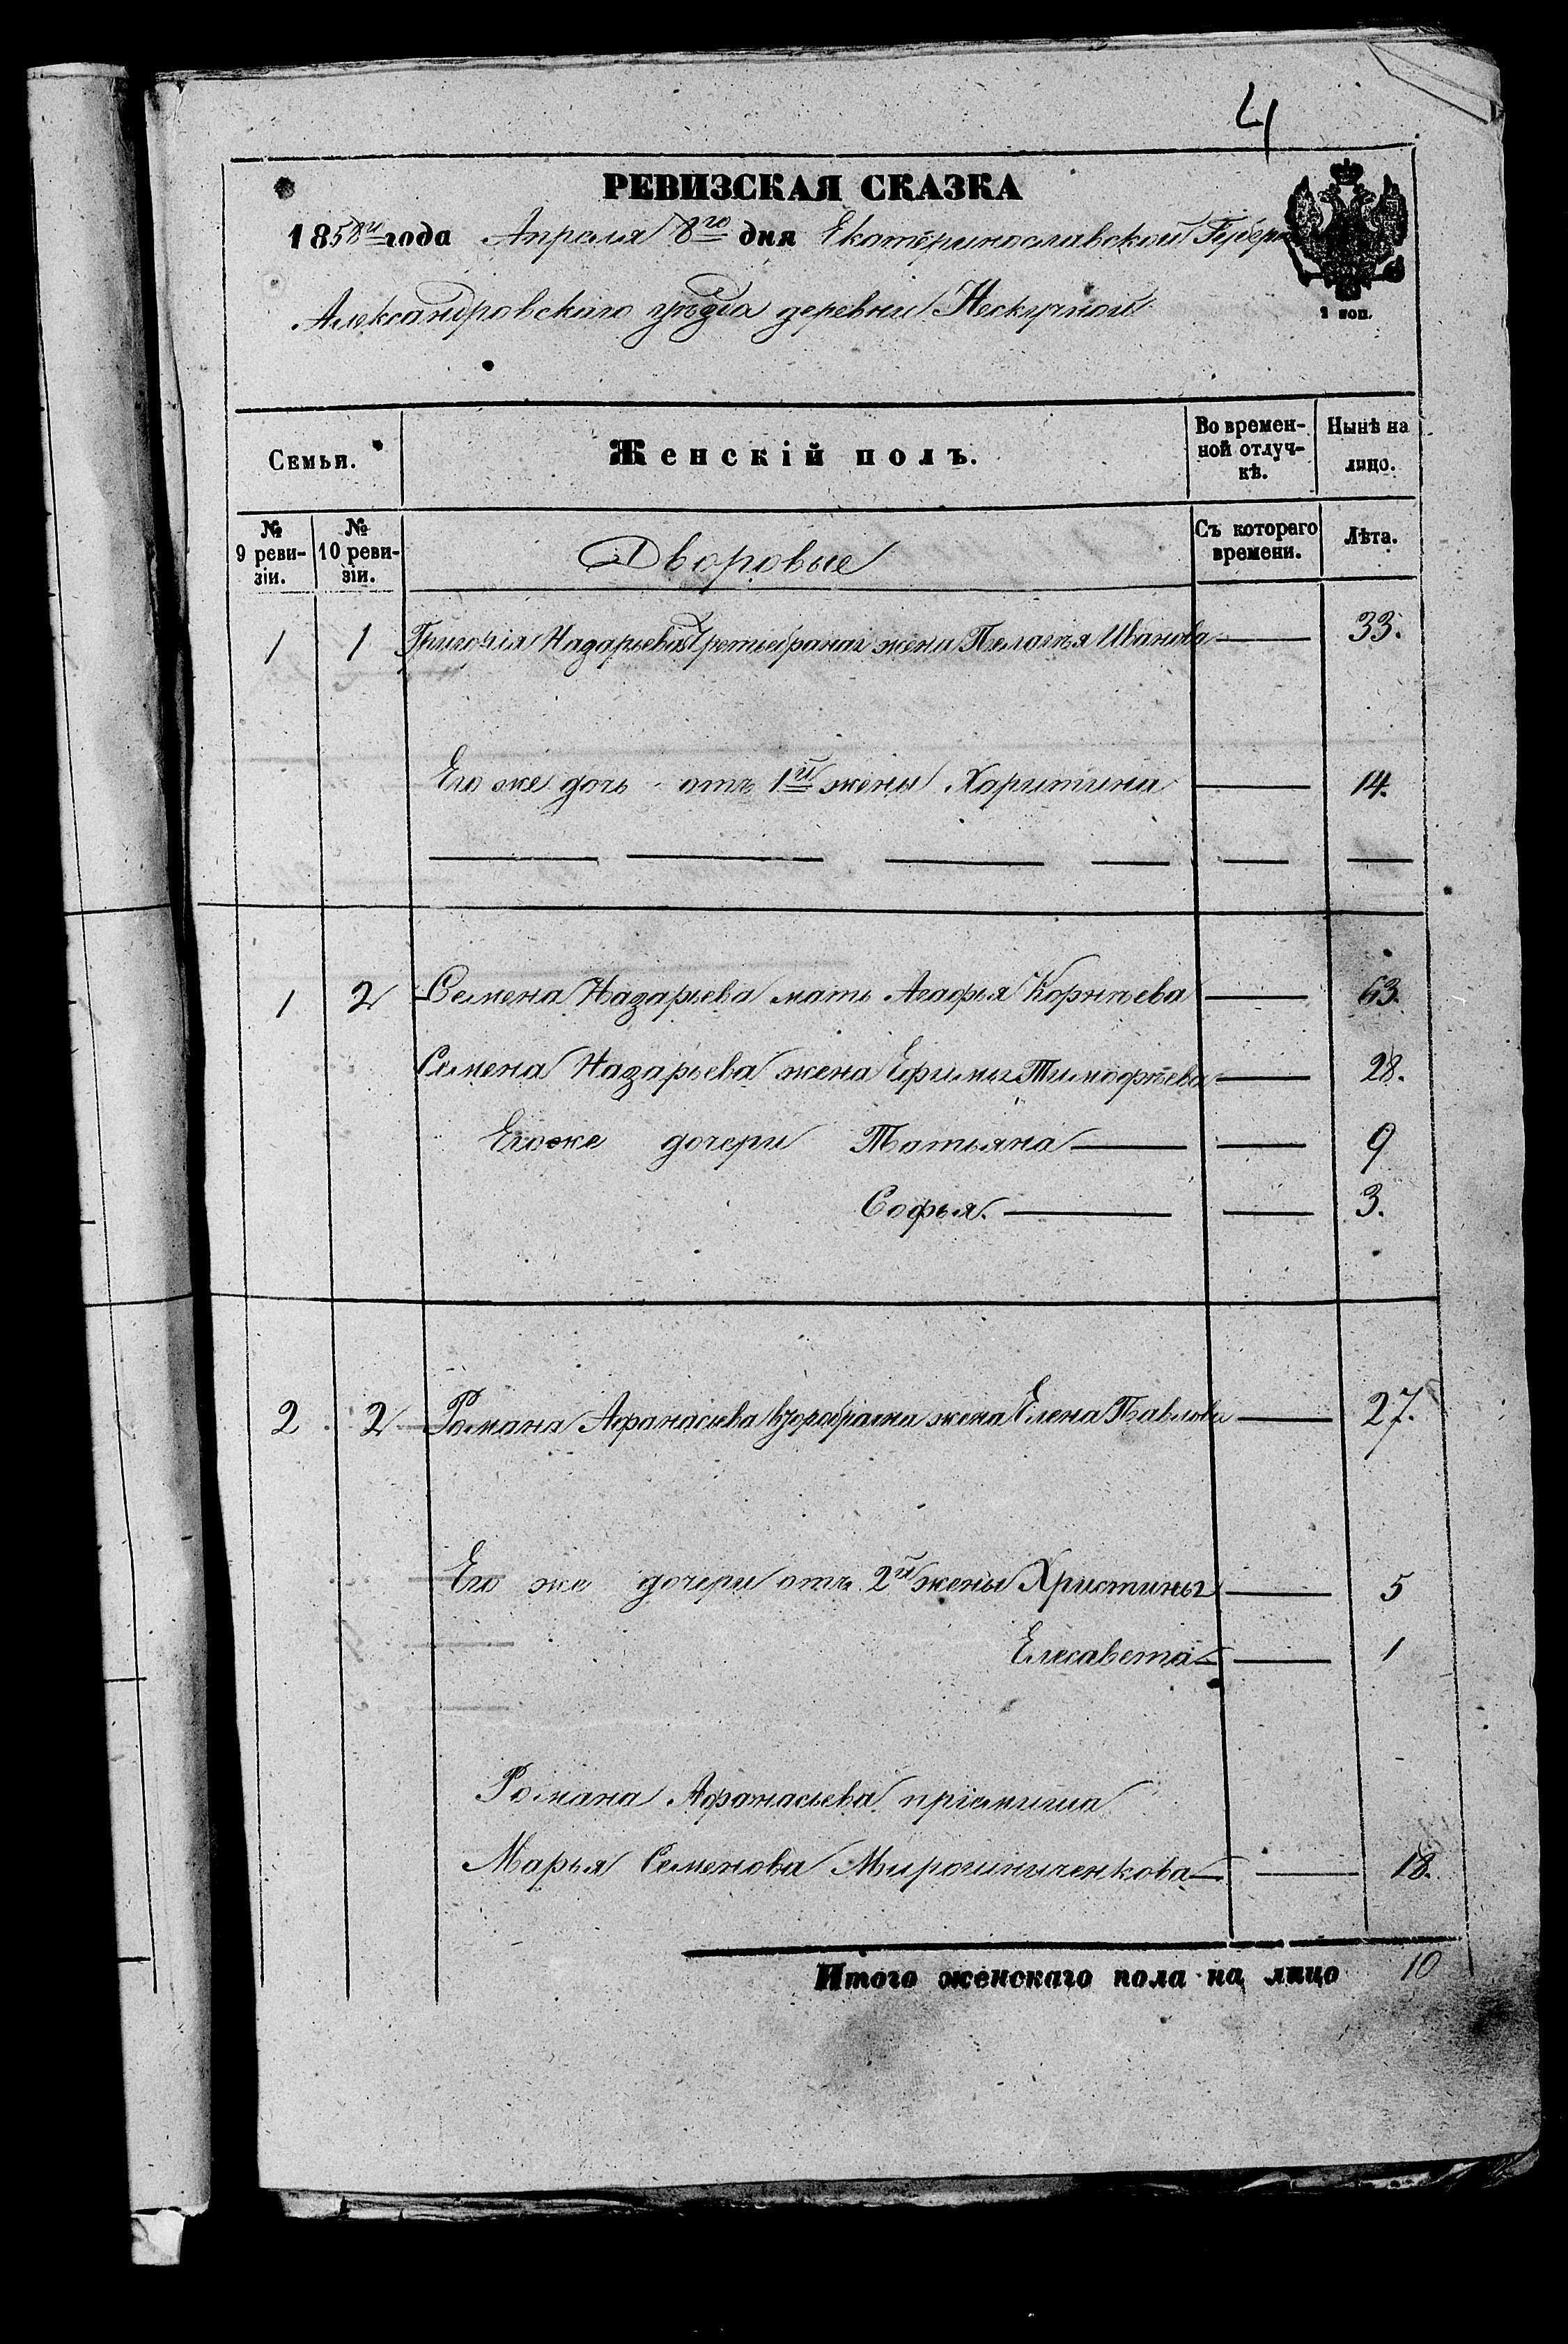 4
РЕВИЗСКАЯ СКАЗКА
1858й года Апреля 8го дня Екатеринославской Губерн
Александровскаго уезда деревни Нескучной
2 коп.
Семьи. Женскій полъ. Во временной отлучкѣ. Нынѣ на лицо.
№ 9 ревизіи. № 10 ревизіи. Дворовые Съ котораго времени. Лѣта.
1 1 Григорія Назарьева Третьебраная жена Пелагѣя Иванова — 33.
Его же дочь отъ 1й жены Харитина — 14.
1 2 Семена Назарьева мать Агафья Корнѣева — 63.
Семена Назарьева жена Ефимья Тимофѣева — 28.
Егоже дочери Татьяна — — 9
Софья. — — 3.
2 2 Романа Афанасьева второбрачна жена Елена Павлова — 27.
Его же дочери отъ 2й жены Христины — 5
Елесавета — — 1
Романа Афанасьева пріемыша
Марья Семенова Мирошниченкова — — 18.
Итого женскаго пола на лицо 10